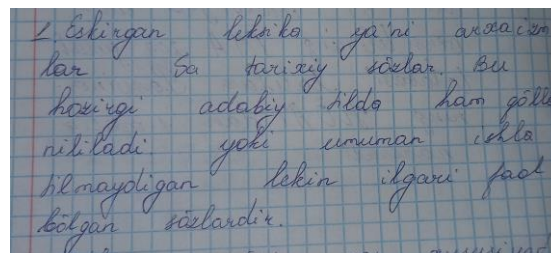 1. Eskirgan leksika ya'ni arxaizm
lar Sa tarixiy sözlar. Bu
hozirgi adabiy tilda ham qöllа
nililadi yoki umuman ishla
tilmaydigan lekin ilgari faol
bölgan sözlardir.